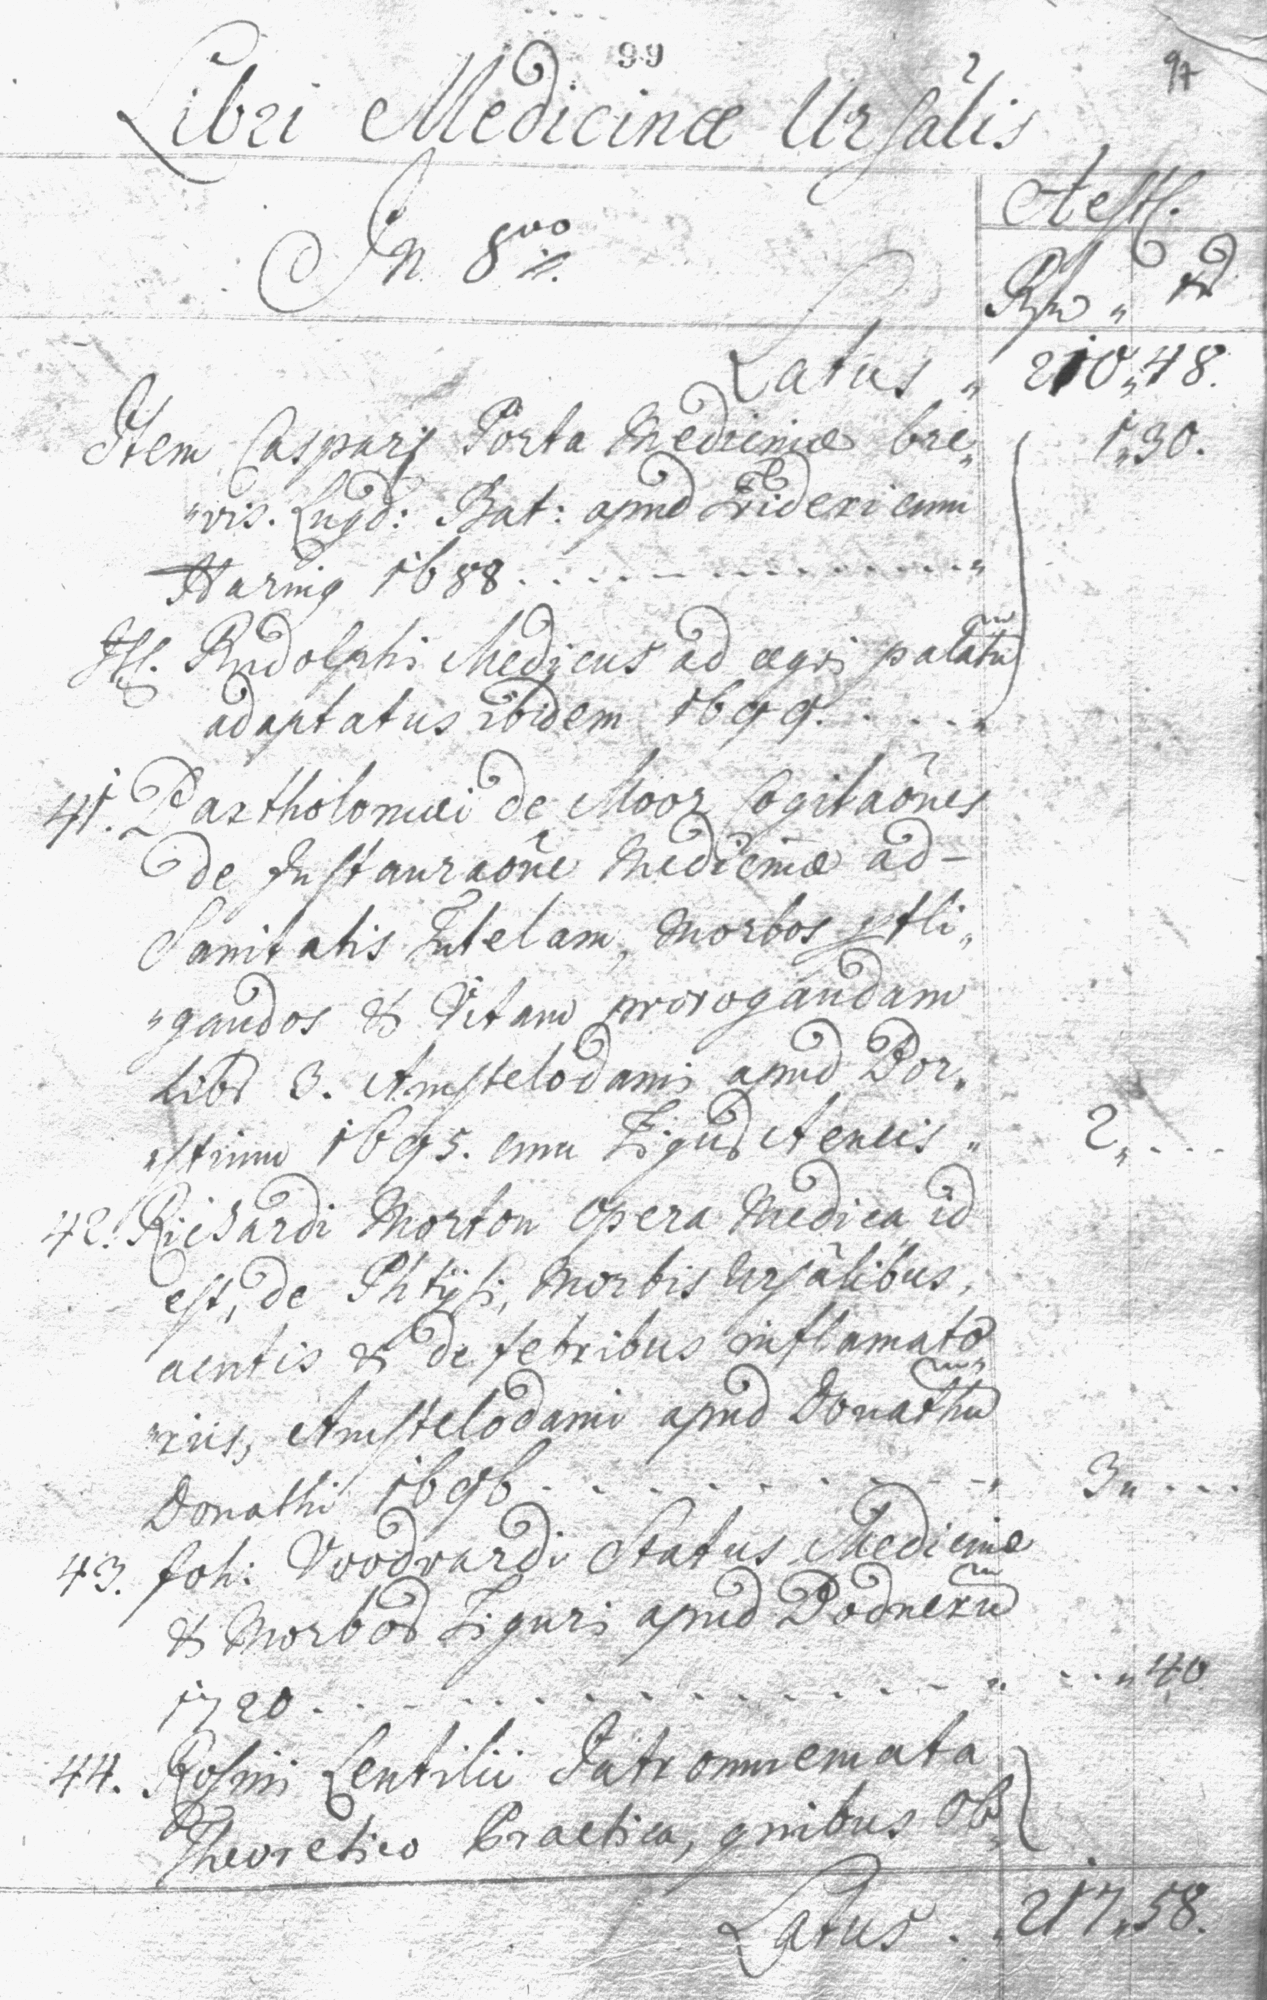 99
97
Libri Medicinæ Ursâlis
Aestî.
In 8vo
Rfl „ xr
Latus „ 210„48.
Item Casparij Porta Medicinæ bre„ 1„30.
„vis. Lugd: Bat: apud Fridericum
Haring 1688 . . . „
It. Rudolphi Medicus ad ægri palatū
adaptatus ibidem 1699. . . . „
41. Bartholomæi de Moor Cogitaônes
de Instauraône Medicinæ ad-
Sanitatis Tutelam, Morbos
„gandos & Vitam prorogandam
Libr 3. Amstelodami apud Bor„
„stium 1695. cum Figur Aeneis „ 2„ . . .
42. Richardi Morton Opera Medica id
est, de Phtysi, Morbis Ursâlibus,
acutis & de febribus inflamato„
„riis, Amstelodami apud Donatū
Donathi 1696 . . . „ 3„ . . .
43. Joh: Woodwardi Status Medicinæ
& Morbor Tiguri apud Bodnerū
1720 . . . „ . . „ 40
44. Rosini Lentilii Iatromnemata
Theoretico Practica, quibus Ob„
Latus . „ 217„58.